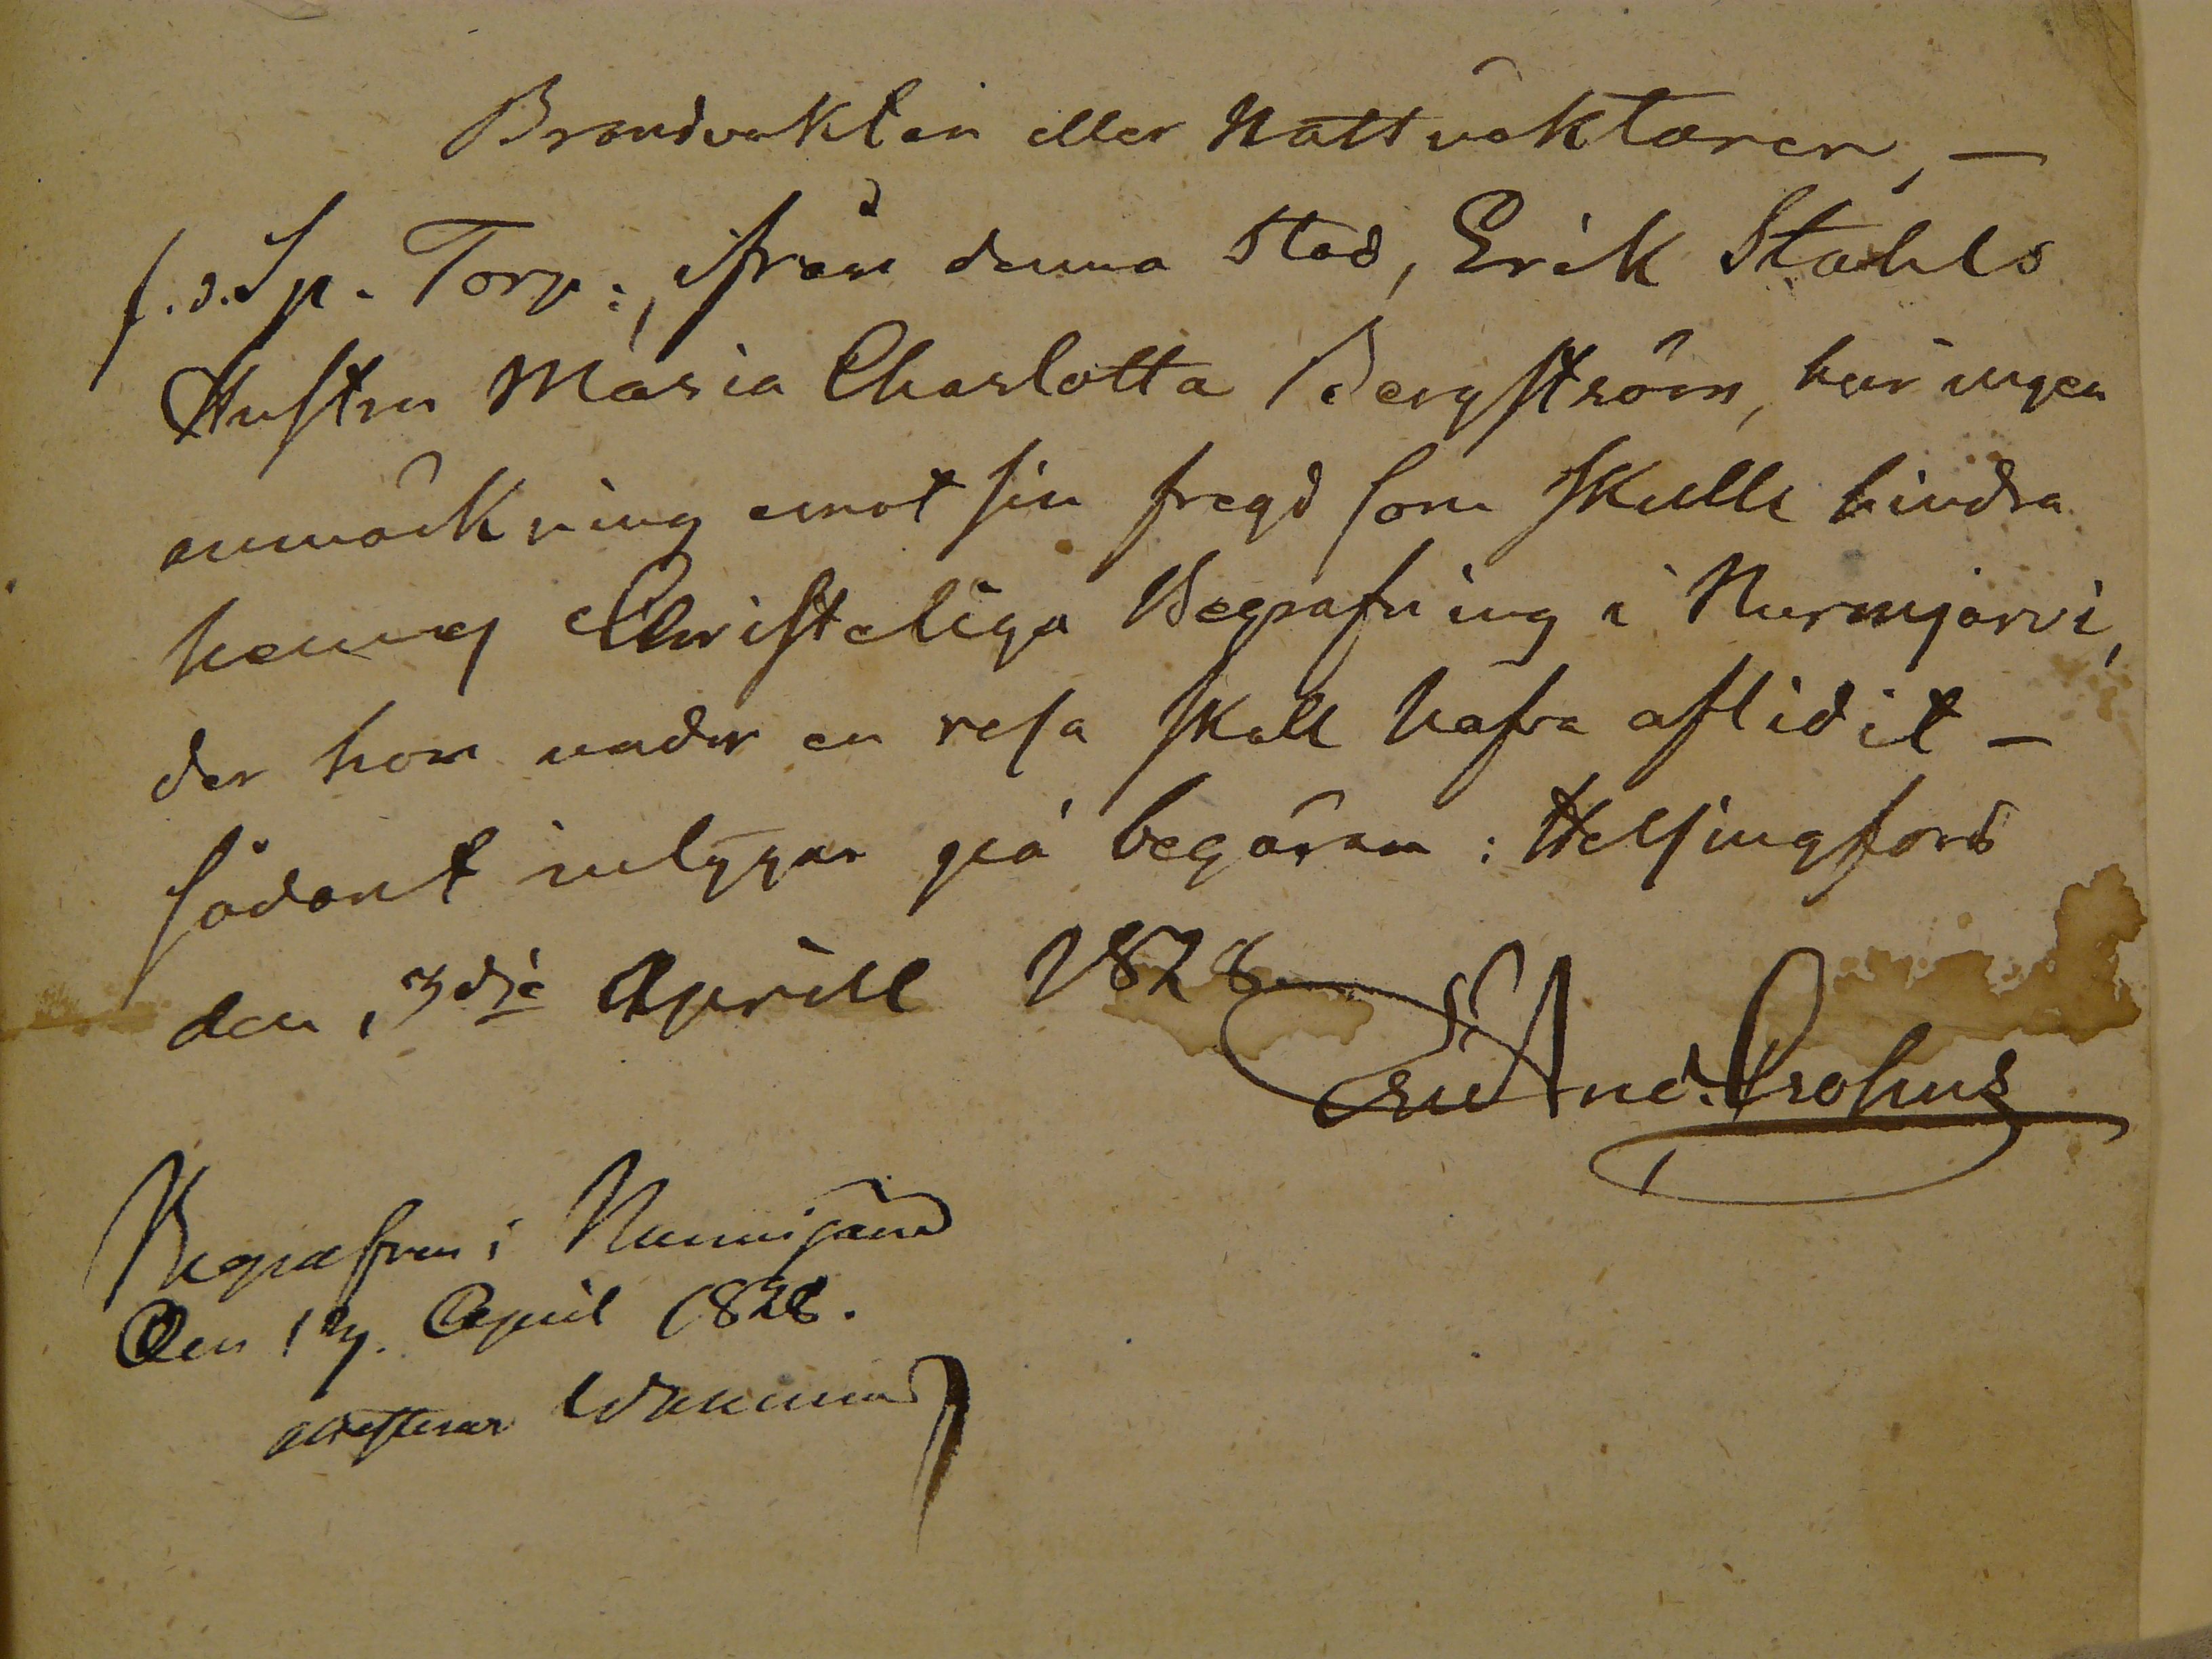 Brandvakten eller Nattväktaren, —
f.d. Sp. Torp:, ifrån denna Stad, Erik Stahls
Hustru Maria Charlotta Bergström, har ingen
anmärkning emot sin fregd som skulle hindra
hennes Christeliga Begrafning i Nurmjärvi,
der hon under en resa skall hafva aflidit —
sådant intygar på begäran: Helsingfors
den, 3dje Aprill 1828
And. Crohns
Begrafven i Nurmijärvi
Den 17. April 1828.
attesterar